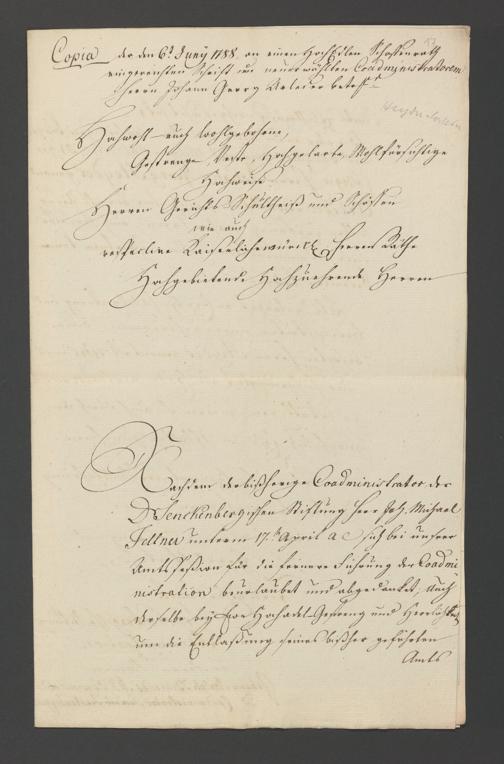 Copia der den 6t Juny 1788. an einen HochEdlen Schöffenrath
eingereichten Schrift um neuerwählten Coadministratorem
Herrn Johann Georg betreff
Hochwohl- auch Wohlgebohrne,
Gestrenge, Veste, Hochgelarte, Wohlfürsichtige
Hochweise
Herren Gerichts-Schultheiß und Schöffen
wie auch
respective Kaiserliche würckl. Herren Räthe
Hochgebietende Hochzuehrende Herren
Nachdem der bißherige Coadministrator der
Dr Senckenbergischen Stiftung Herr Joh. Michael
Fellner unterm 17ten April a. c. sich bei unserer
Amts Session für die fernere Führung der Coadmi
nistration beurlaubet und abgedancket, auch
derselbe bey Ew HochAdel. Gestreng und Herrlichkeit
um die Entlaßung seines bißher geführten
Amts